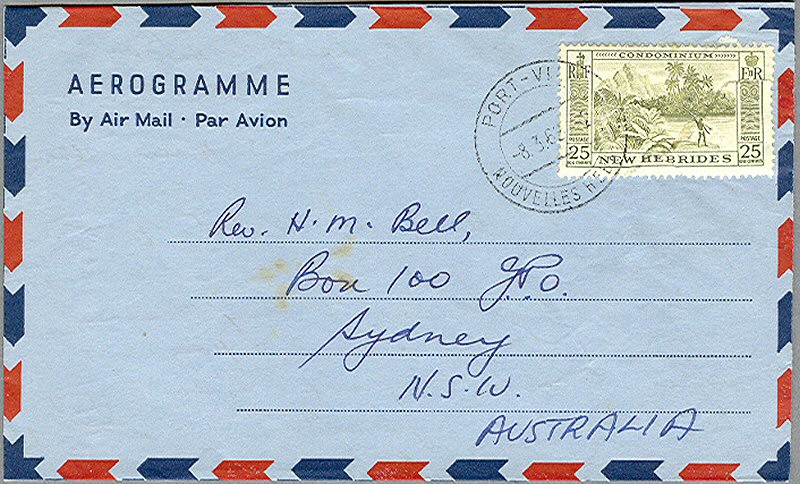 AEROGRAMME
By Air Mail · Par Avion
CONDOMINIUM
RF
EIIR
POSTAGE
POSTAGE
25
NEW HEBRIDES
25
PORT-VI
-8.3.6
NOUVELLES HE
Rev. H. M. Bell,
Box 100 G.P.O.
Sydney
N.S.W.
AUSTRALIA